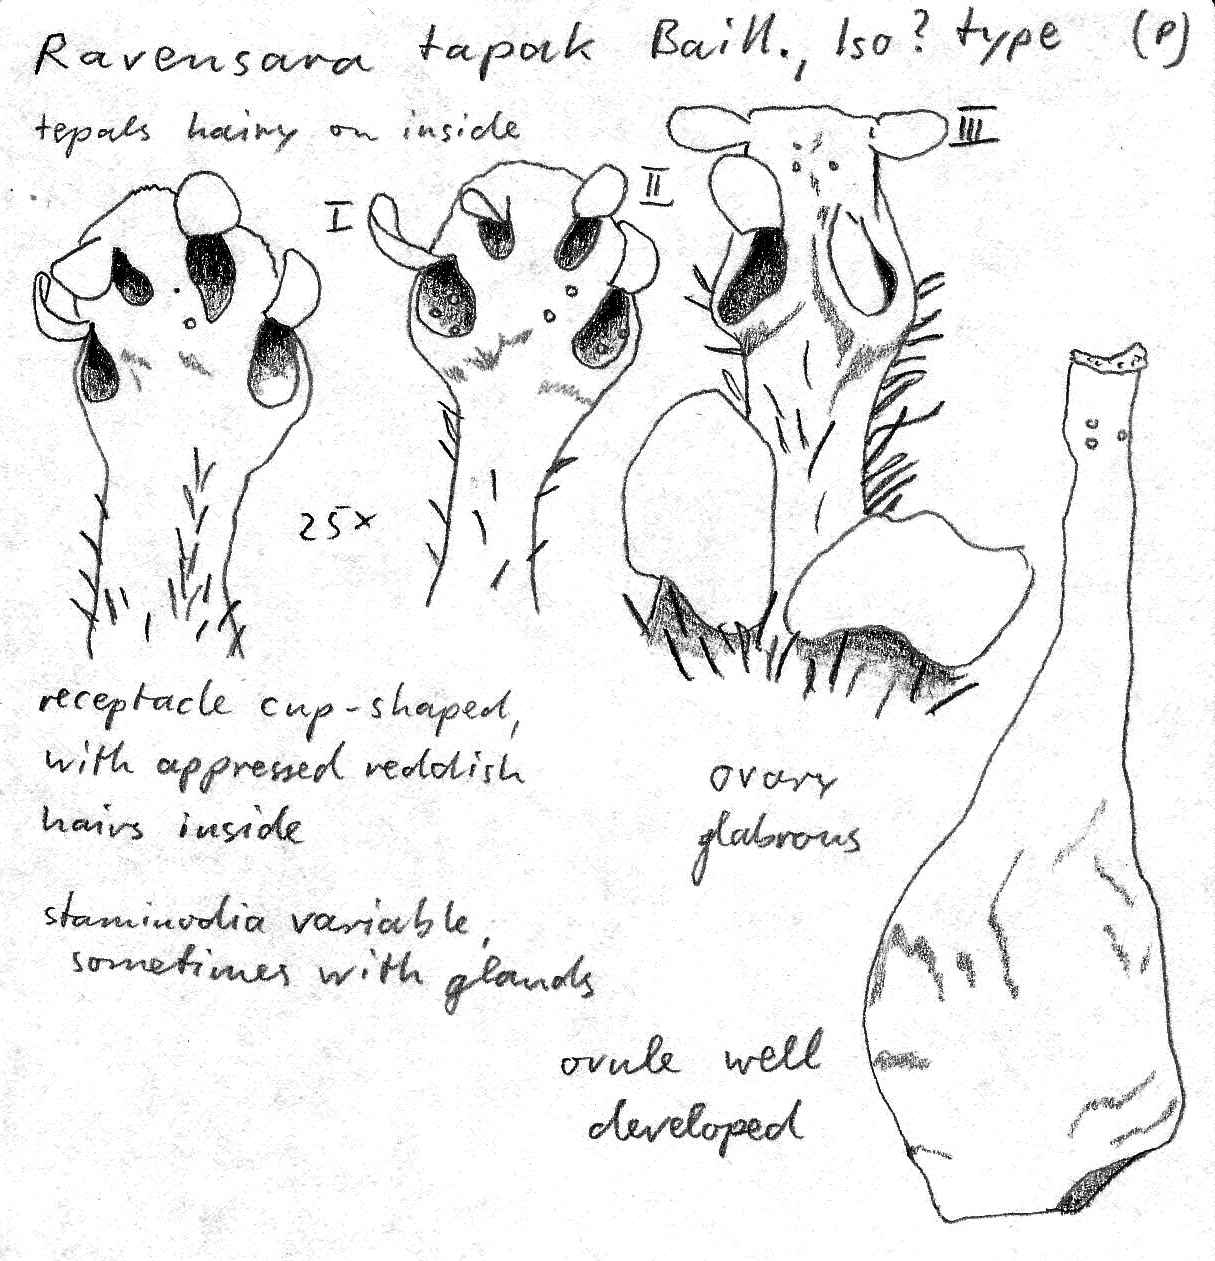 Ravensara tapak Baill., Iso? type (P)
tepals hairy on inside
I
II
III
25x
receptacle cup-shaped,
with appressed reddish
hairs inside
ovary
glabrous
staminodia variable,
sometimes with glands
ovule well
developed